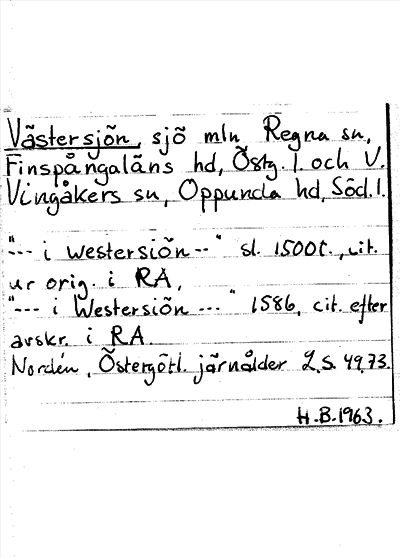 Västersjön, sjö mln Regna sn,
Finspångaläns hd, Östg. l. och V.
Vingåkers sn, Oppunda hd, Söd. l.
"--- i westersiön--" sl. 1500t., cit.
ur orig. i RA,
"--- i Westersiön ---" 1586, cit. efter
avskr. i RA.
Nordén, Östergötl. järnålder L.S. 49,73.
H.B.1963.